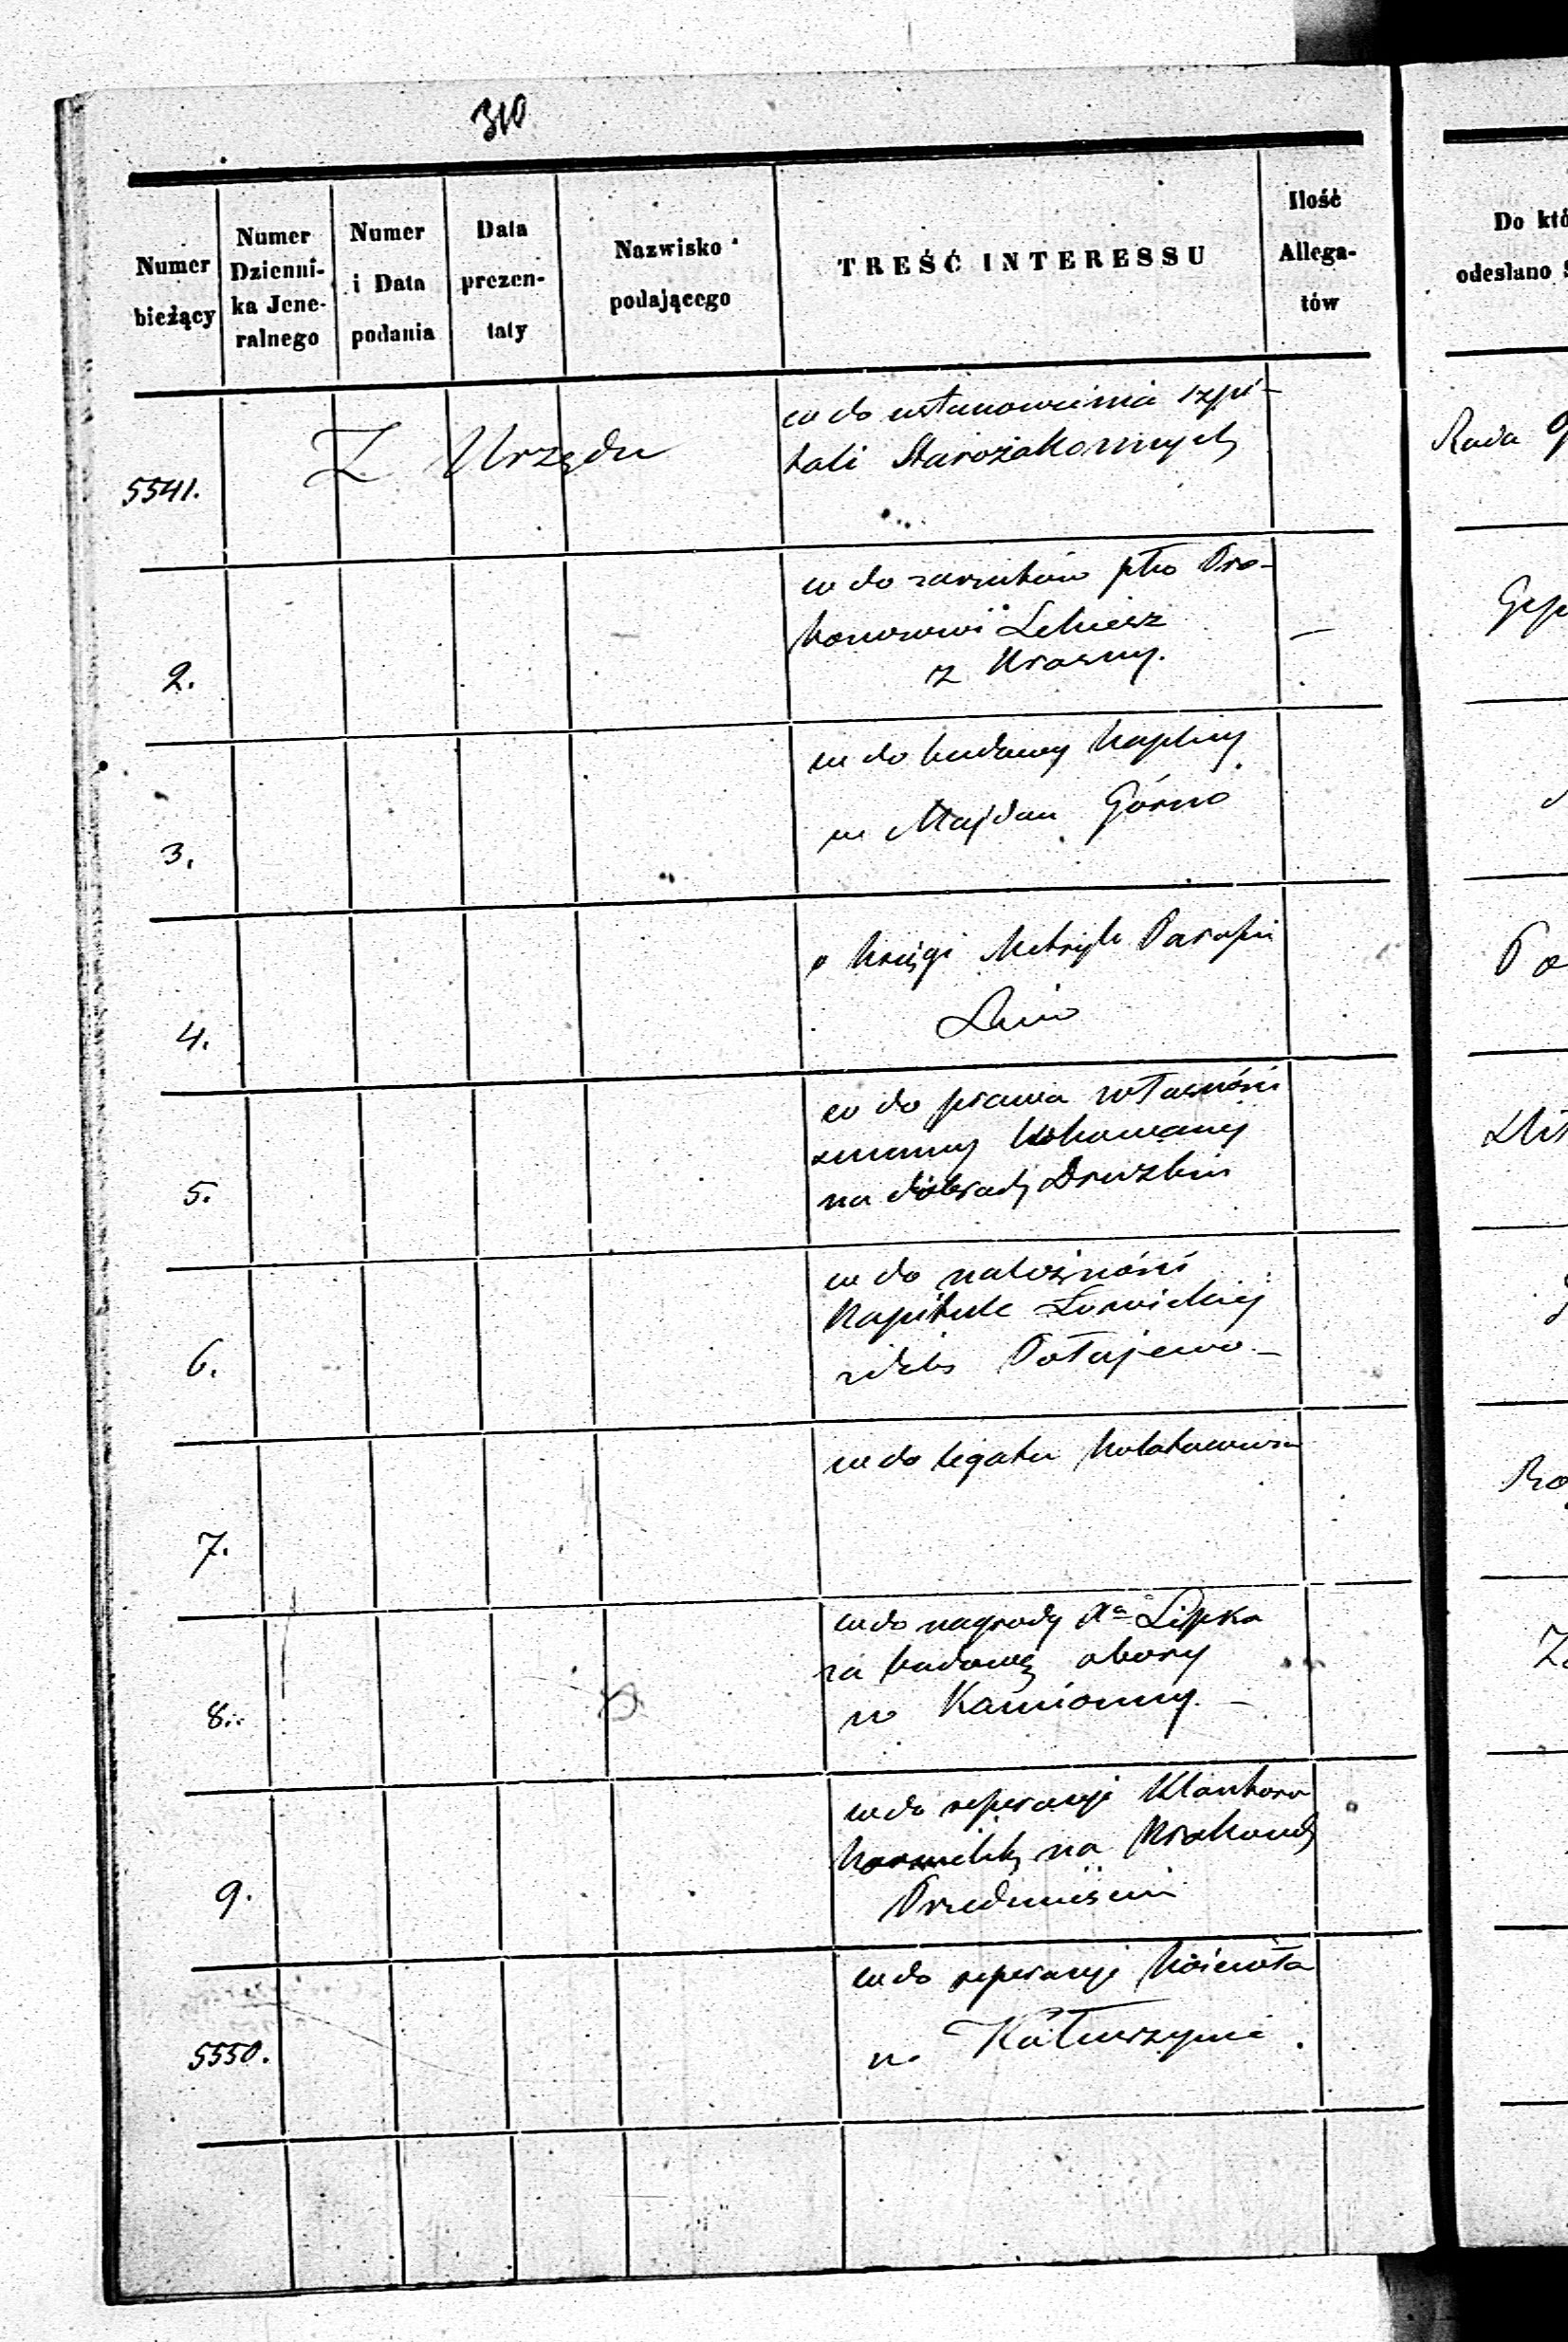 310
Numer bieżący
Numer Dzienni-
ka Jene-
ralnego
Numer i Data podania
Data prezen-
taty
Nazwisko podającego
TREŚĆ INTERESSU
Ilość Allega-
tów
Do któ
odesłano S
5541.
Z Urzędu
co do ustanowienia szpi-
tali Starozakonnych
Rada
2.
co do zarzutów pko Pro-
boszczowi
z Krasny.
—
3.
co do budowy kaplicy
w Majdan Górno
4.
o księgi Metryk Parafii
5.
co do prawa własności
summy lokowanej
na dobrach Druzbin
6.
co do należności
Kapitule Łowickiej
z dóbr Pałajewo —
7.
co do legatu
8.
co do nagrody Xa Lipka
za budowę obory
w Kamionny. —
9.
co do reperacyi Klasztoru
Karmelit. na Krakows.
Przedmieściu
5550.
co do reperacyi Kościoła
w Kałuszynie.